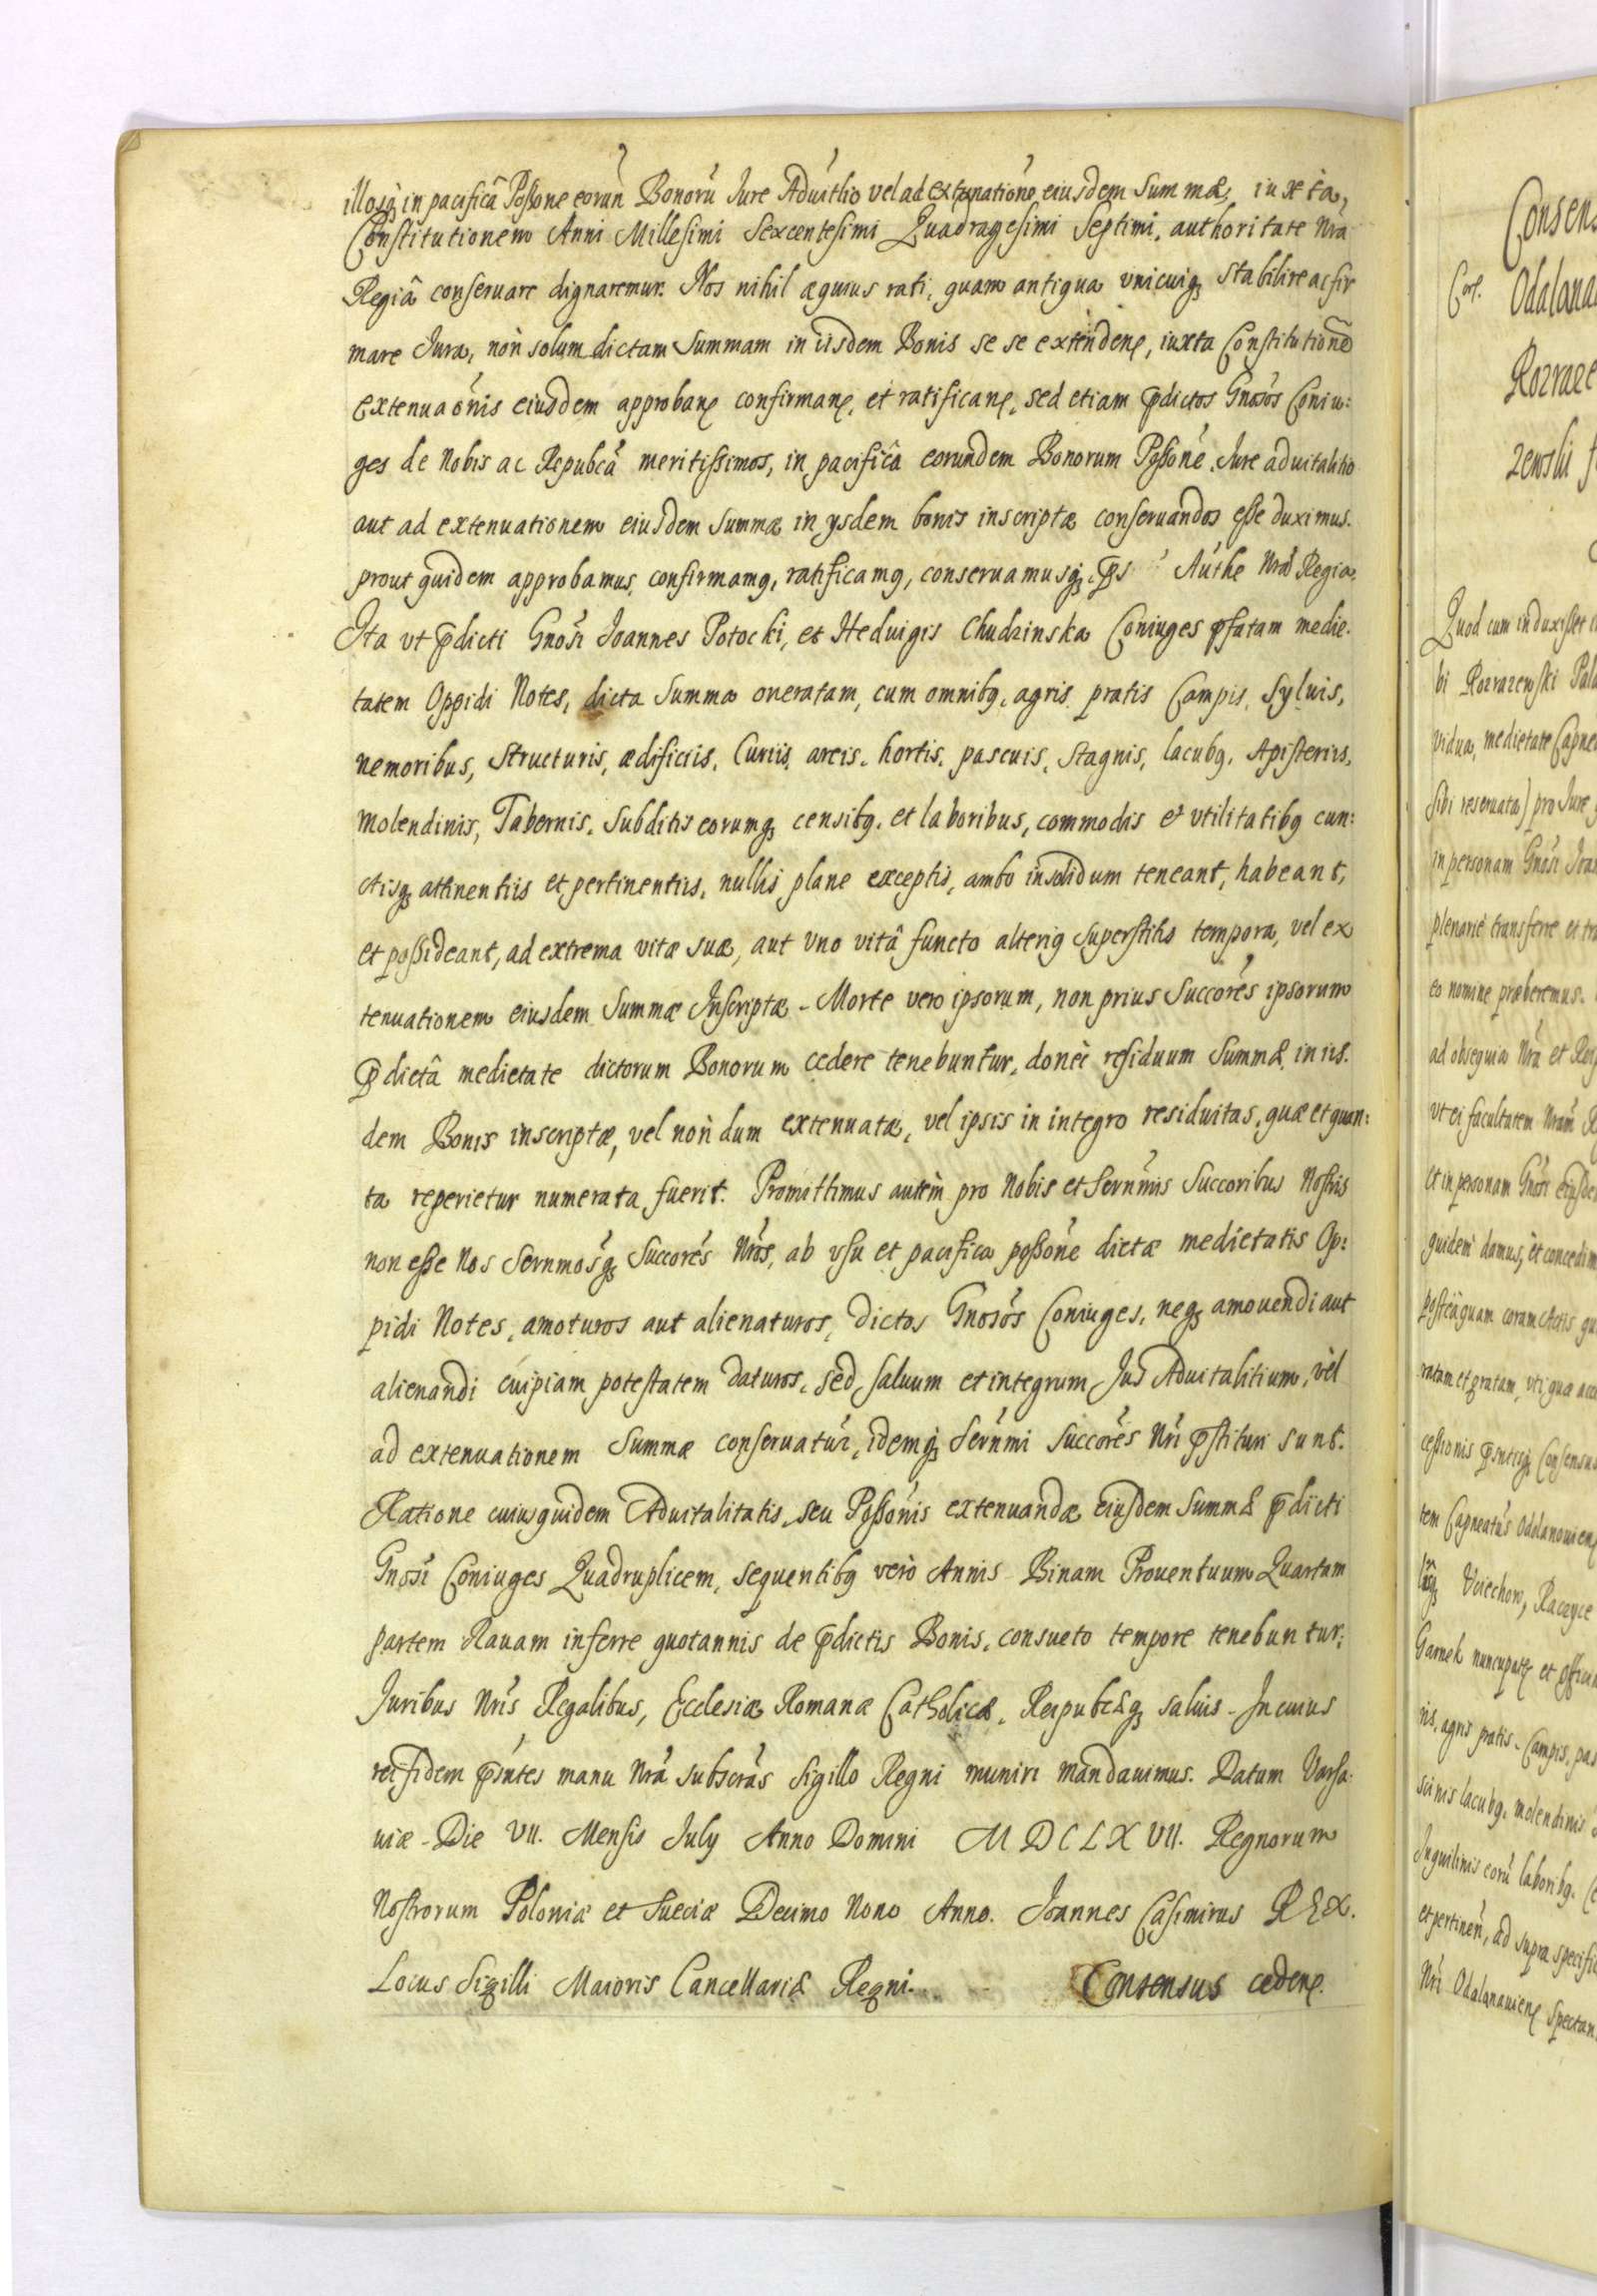 illosq in pacificâ Possone eorun Bonorũ Jure Aduitlio vel ad extenationẽ eiusdem Summæ, iuxta,
Constitutionem Anni Millesimi Sexcentesimi Quadragesimi Septimi, authoritate Nrã
Regiâ conseruare dignaremur. Nos nihil æquius rati, quam antiqua vnicuiq stabilire ac fir
mare Jura, non solum dictam Summam in iisdem Bonis se se extendenę, iuxta Constitutionẽ
extenuaõnis eiusdem approbanę confirmanę, et ratificanę, sed etiam p̃dictos Gnosos Coniu:
ges de Nobis ac Repubcã meritissimos, in pacificâ eorundem Bonorum Possonẽ Jure aduitalitio
aut ad extenuationem eiusdem Summæ in ysdem bonis inscriptæ conseruandos esse duximus.
prout quidem approbamus, confirmamq, ratificamq, conseruamusq, p̃s Authe Nrã Regia.
Ita vt p̃dicti Gnosi Joannes Potocki, et Heduigis Chudzinska Coniuges p̃fatam medie.
tatem Oppidi Notes, dicta Summa oneratam, cum omnibq, agris pratis Campis, Syluis,
nemoribus, structuris, ædificiis, Curiis, areis, hortis, pascuis, Stagnis, lacubq, Apisteriis,
Molendinis, Tabernis, Subditis eorumq censibq, et laboribus, commodis et vtilitatibq cun:
ctisq attinentiis et pertinentiis, nullis plane exceptis, ambo insolidum teneant, habeant,
et possideant, ad extrema vitæ suæ, aut vno vitâ functo alteriq superstitis tempora, vel ex
tenuationem eiusdem Summæ Inscriptæ - Morte vero ipsorum, non prius Succorẽs ipsorum
p̃dictâ medietate dictorum Bonorum cedere tenebuntur, donec residuum Summæ in iis.
dem Bonis inscriptæ, vel non dum extenuatæ, vel ipsis in integro residuitas, quæ et quan:
ta reperietur numerata fuerit. Promittimus autem pro Nobis et Sernmis Succoribus Nostris
non esse Nos Sernmosq Succorẽs Nros, ab vsu et pacifica possonẽ dictæ medietatis Op:
pidi Notes, amoturos aut alienaturos, dictos Gnosos Coniuges, neq amouendi aut
alienandi cuipiam potestatem daturos, sed saluum et integrum Jus Aduitalitium, vel
ad extenuationem Summæ conseruatur, idemq Sernmi Succorẽs Nri p̃stituri sunt.
Ratione cuiusquidem Aduitalitatis, seu Possonis extenuandæ eiusdem Summæ p̃dicti
Gnosi Coniuges Quadruplicem, sequentibq vero Annis Binam Prouentuum Quartam
partem Rauam inferre quotannis de p̃dictis Bonis, consueto tempore tenebuntur,
Juribus Nris Regalibus, Ecclesiæ Romanæ Catholicæ, Reipubcæq saluis - In cuius
rei fidem p̃sntes manu Nrã subscrãs Sigillo Regni muniri mandauimus. Datum Varsa.
uiæ - Die VII. Mensis July Anno Domini MDCLXVII. Regnorum
Nostrorum Poloniæ et Sueciæ Decimo Nono Anno. Joannes Casimirus REX.
Locus Sigilli Maioris Cancellariæ Regni. Consensus cedenę.
Consens
Odalana
Rozraze
zewski
Quod cum induxisset
bi Rozrazewski Pala
vidua, medietate Capne
sibi reseruata) pro Jure
in personam Gnosi Joan
plenarie transferre et tra
eo nomine præberemus.
ad obsequia Nrã et Rei
vt ei facultatem Nram R
et in personam Gnosi eiusde
quidem damus, et concedim
posteaquam coram Actis qu
ratam et gratam, vti quæ acc
cessionis p̃sntisq Consensus
tem Capneatus Odolanouienę
Vciechow, Raczyce
Garnek nuncupatę et officiu
nis, agris pratis - Campis, pas
scinis lacubq, molendinis
Inquilinis eorũ laboribq,
et pertineñ, ad supra specific
Nri Odalanauienę spectan.